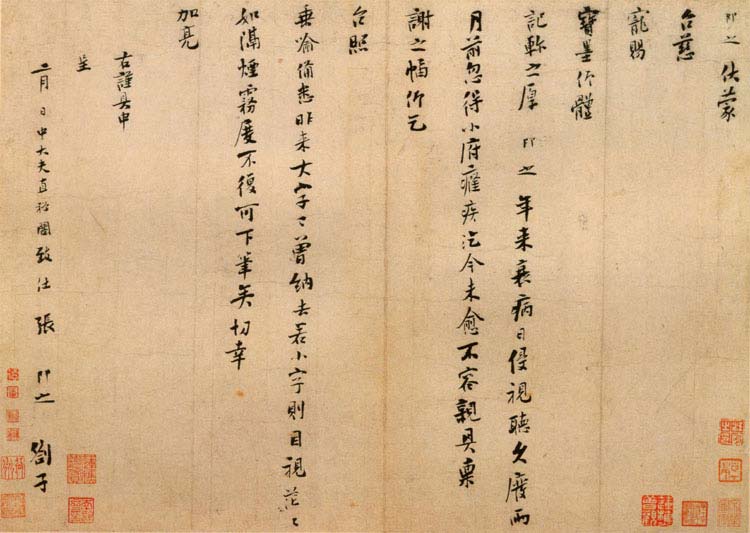 即之伏蒙
台慈
寵賜
寶墨仰體
記軫之厚即之年来衰病日侵視聽久廢兩
月前忽得小府癃疾迄今未愈不容親具稟
謝之幅仰乞
台照
垂喻備悉昨来大字已曾納去若小字則目視茫々
如滿煙霧廢不復可下筆矣切幸
加亮
右謹具申
呈
二月日中大夫直秘閣致仕張即之劄子